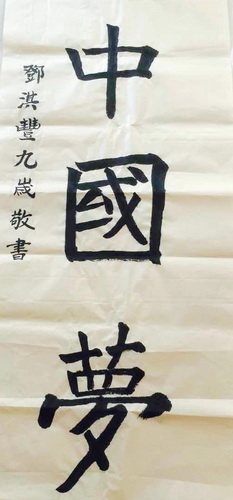 中國夢
鄧淇豐九歲敬書